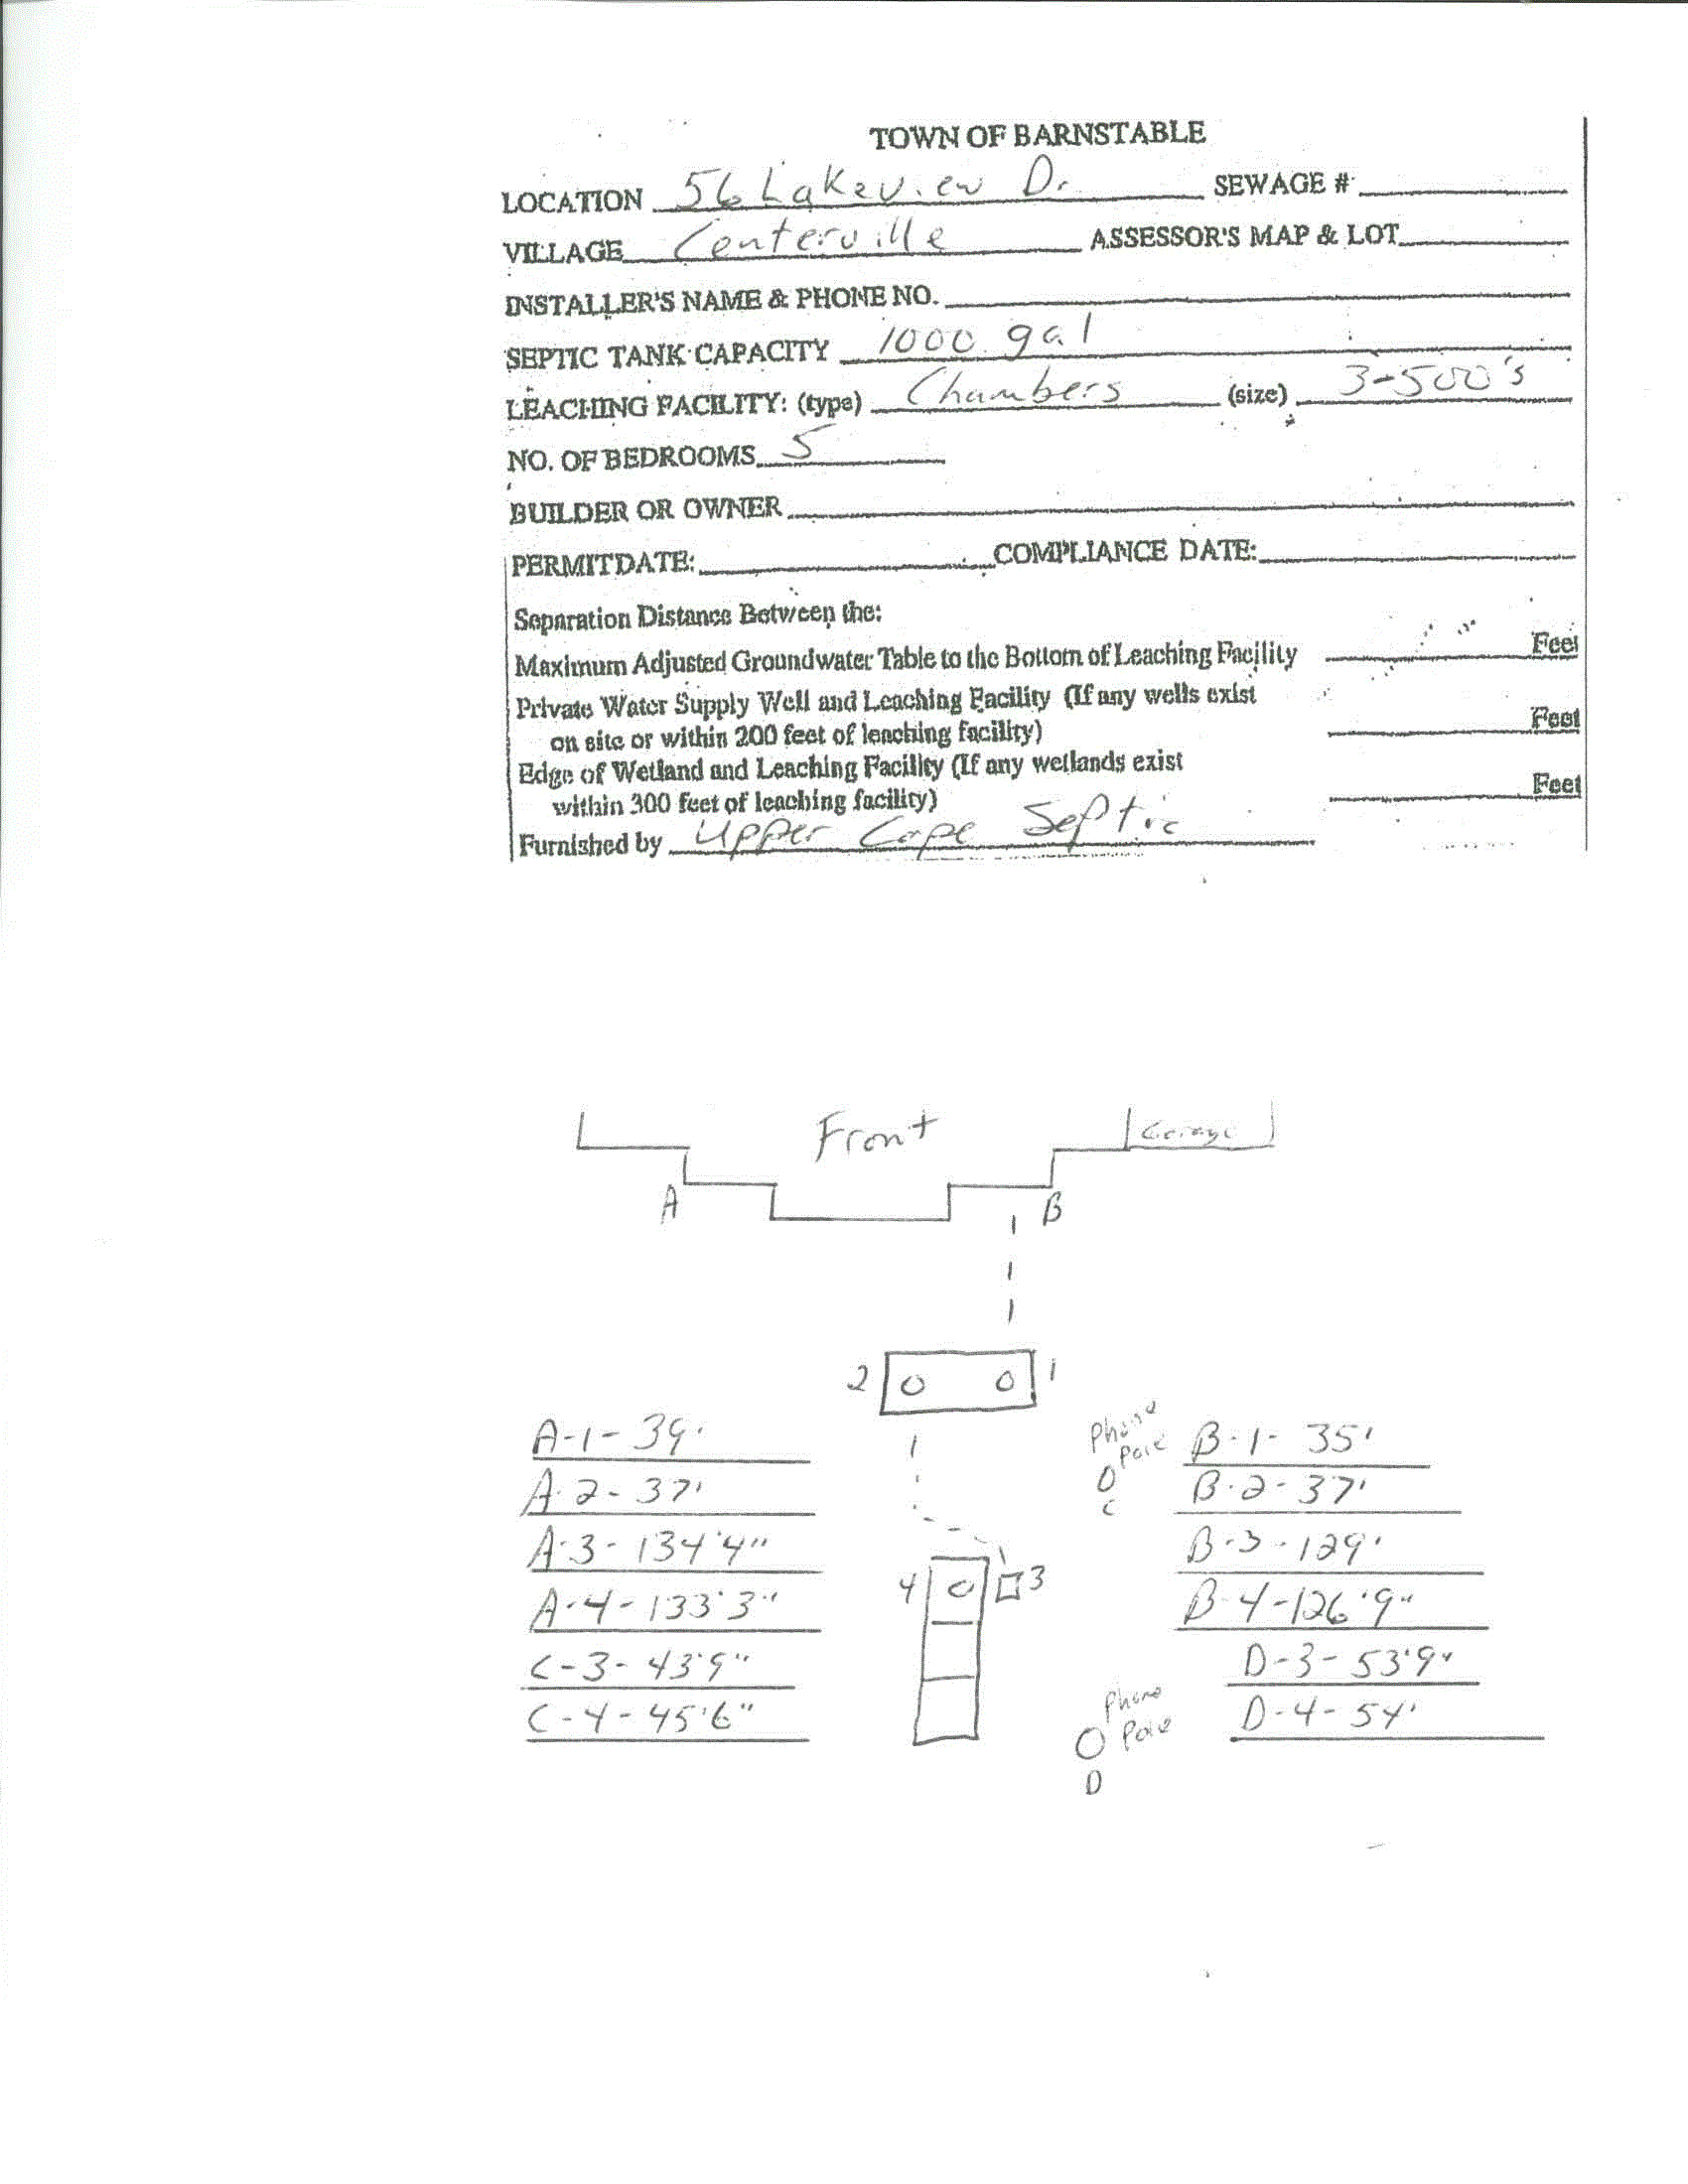 TOWN OF BARNSTABLE
LOCATION 56 Lakeview Dr SEWAGE #
VILLAGE Centerville ASSESSOR'S MAP & LOT
INSTALLER'S NAME & PHONE NO.
SEPTIC TANK CAPACITY 1000 gal
LEACHING FACILITY: (type) Chambers (size) 3-500's
NO. OF BEDROOMS 5
BUILDER OR OWNER
PERMITDATE: COMPLIANCE DATE:
Separation Distance Between the:
Maximum Adjusted Groundwater Table to the Bottom of Leaching Facility Feet
Private Water Supply Well and Leaching Facility (If any wells exist
on site or within 200 feet of leaching facility) Feet
Edge of Wetland and Leaching Facility (If any wetlands exist
within 300 feet of leaching facility) Feet
Furnished by Upper Cape Septic
Front
Garage
A
B
2
1
Phone
Pole
C
4
3
Phone
Pole
D
A-1- 39'
A-2- 37'
A-3- 134'4"
A-4- 133'3"
C-3- 43'9"
C-4- 45'6"
B-1- 35'
B-2- 37'
B-3- 129'
B-4- 126'9"
D-3- 53'9"
D-4- 54'